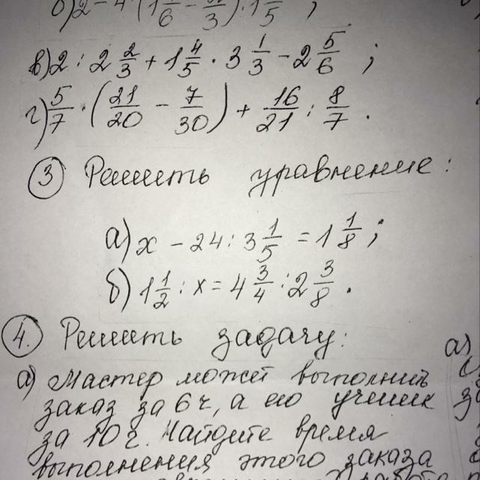 б) 2 - 4 · (1 1/6 - /3) · 1 1/5 ;
в) 2 : 2 2/3 + 1 4/5 · 3 1/3 - 2 5/6 ;
г) 5/7 · (21/20 - 7/30) + 16/21 : 8/7 .
③ Решить уравнение :
а) x - 24 : 3 1/5 = 1 1/8 ;
б) 1 1/2 : x = 4 3/4 : 2 3/8 .
④. Решить задачу :
а) Мастер может выполнить
заказ за 6 ч, а его ученик
за 10 ч. Найдите время
выполнения этого заказа
а)